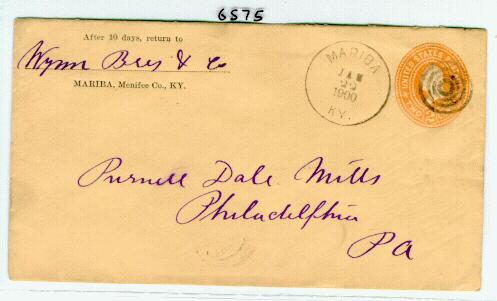 6575
After 10 days, return to
Wynn Bros & Co
MARIBA, Menifee Co., KY.
MARIBA
JAN
22
1900
KY.
UNITED STATES
Purnell Dale Mills
Philadelphia
Pa